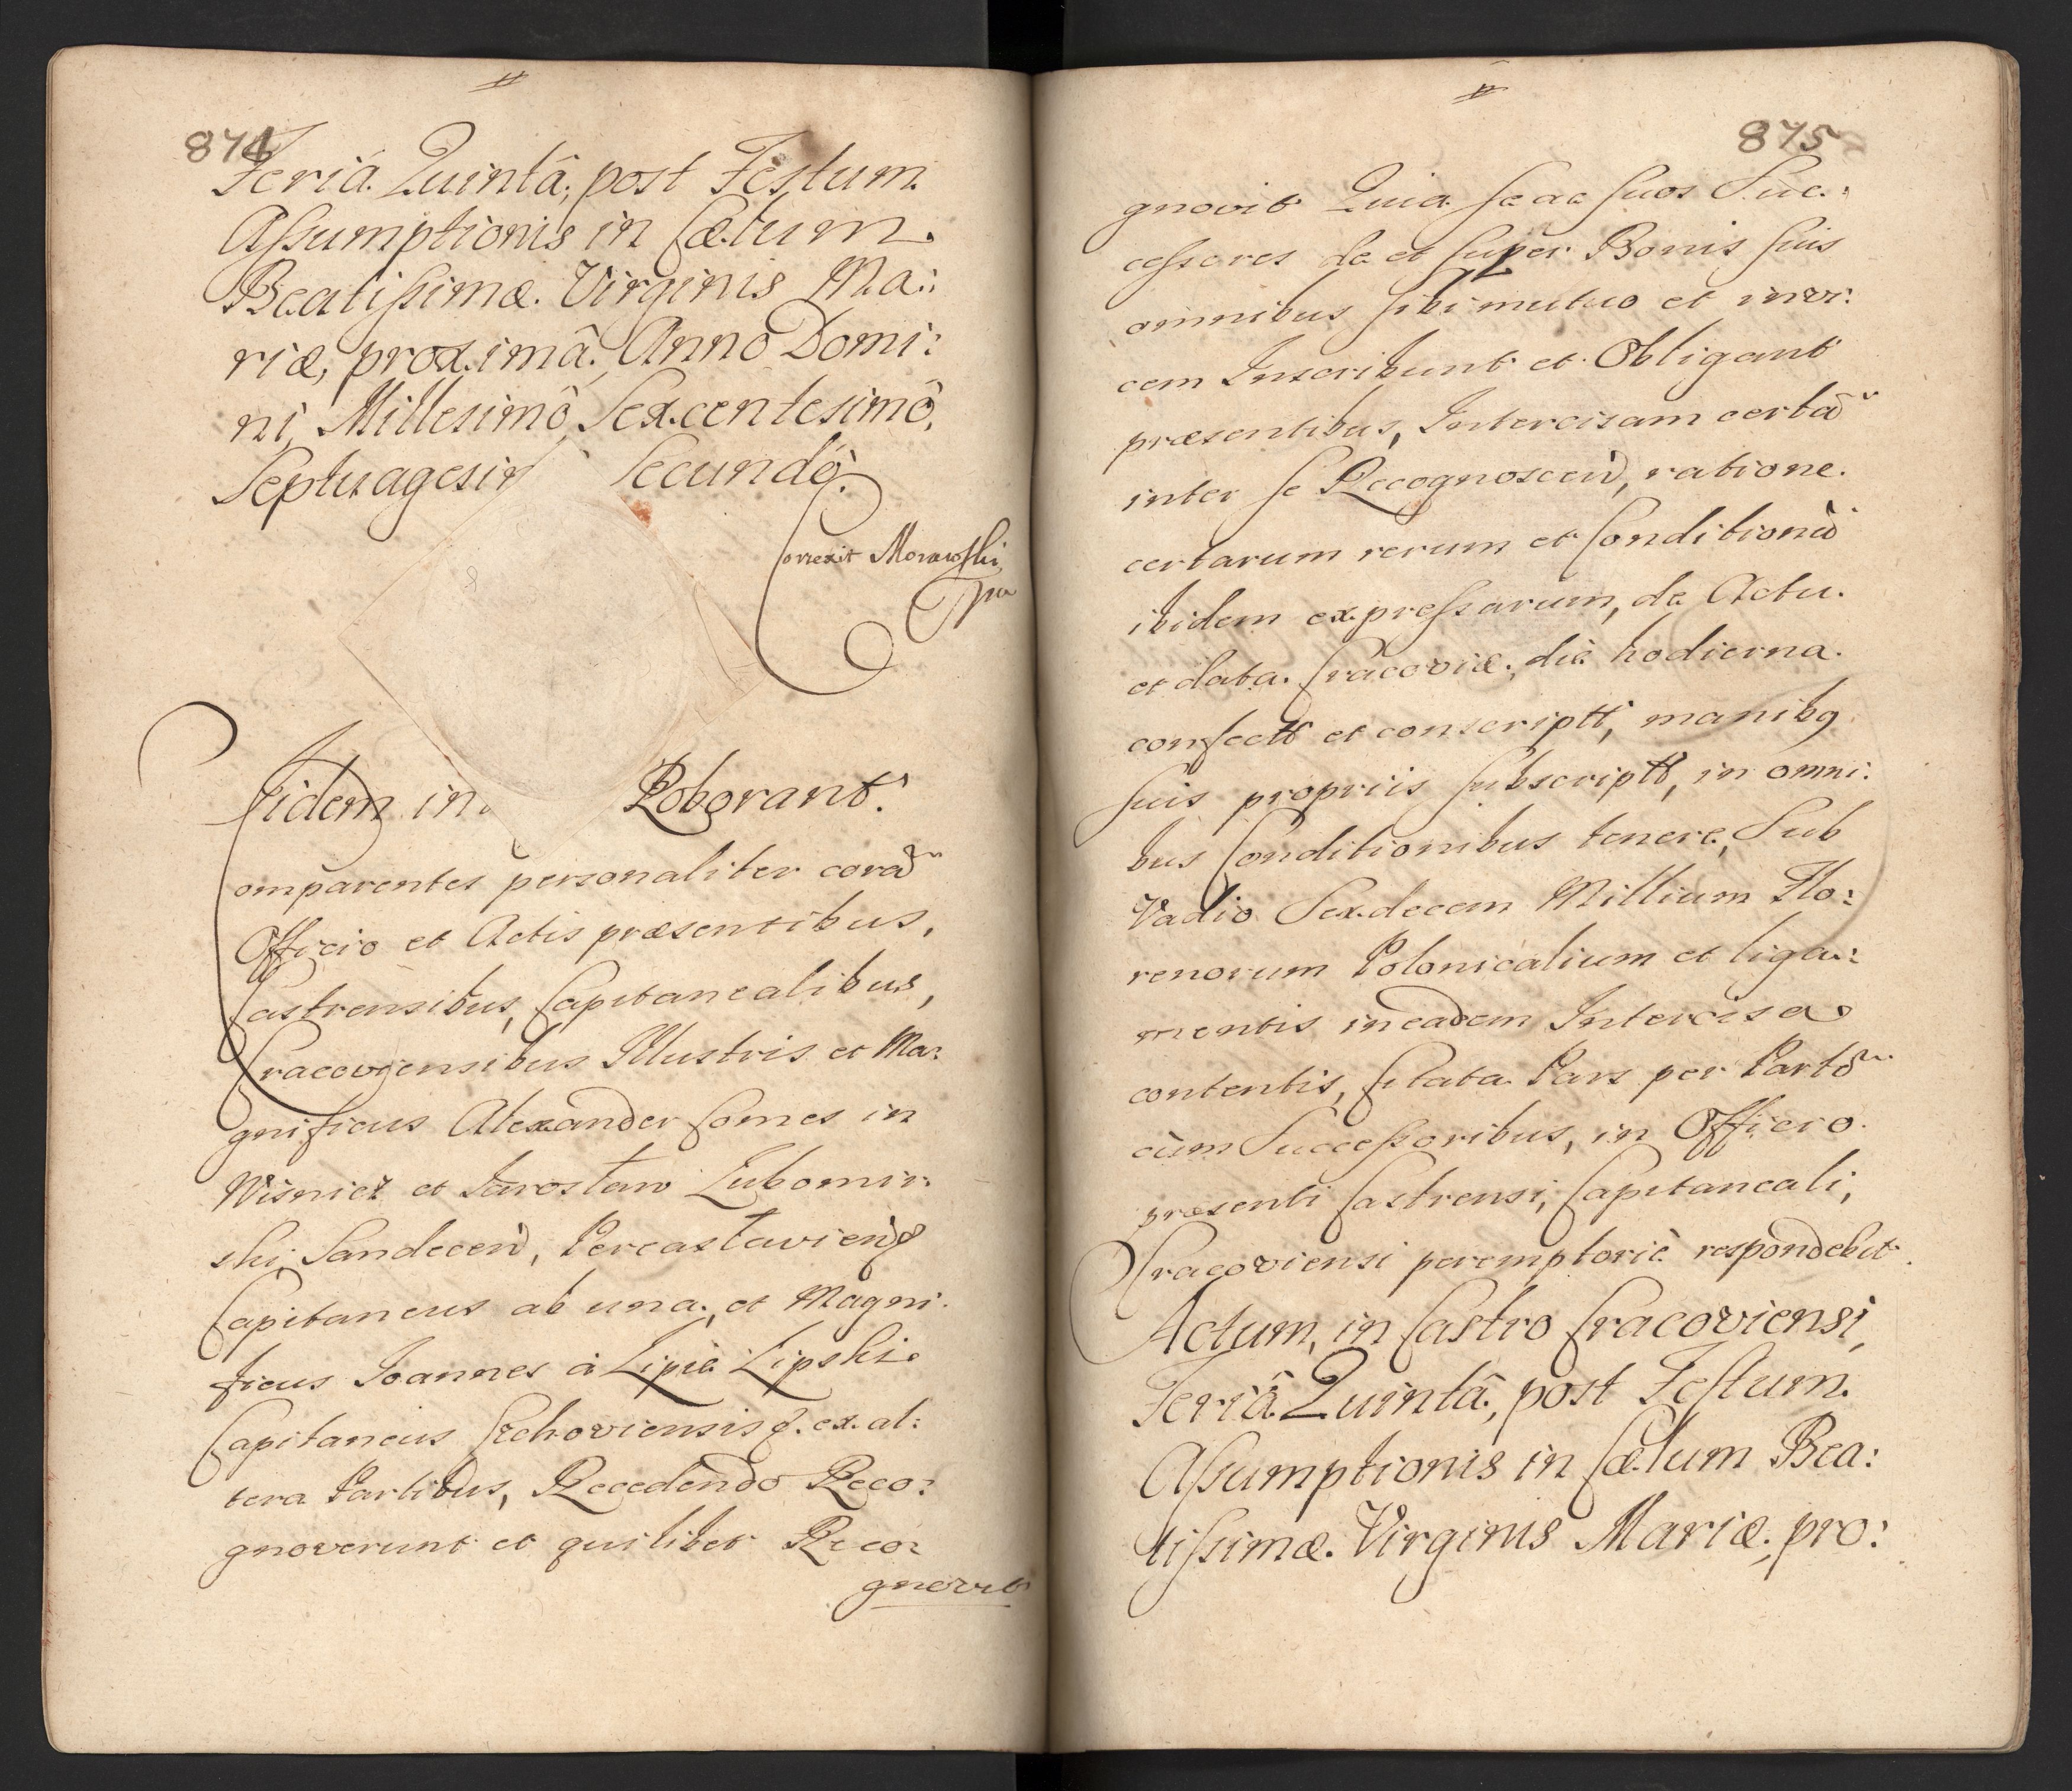 874
Feriâ Quintâ, post Festum
Aſsumptionis in Cœlum
Beatiſsimæ Virginis Ma:
riæ, proximâ. Annô Domi:
ni Millesimô Sexcentesimô
Septuagesi Secundô.
Correxit Morawſki
mp
Eidem in Roborant.
Comparentes personaliter corã
Officio et Actis præsentibus,
Castrensibus, Capitanealibus,
Cracoviensibus Illustris et Ma:
gnificus Alexander Comes in
Wisnicz et Jarosław Lubomir:
ski, Sandecen, Pereasłavien
Capitaneus ab una, et Magni:
ficus Joannes à Lipie Lipski
Capitaneus Czchoviensis ex al:
tera Partibus, Recedendo Reco:
gnoverunt et quilibet Reco:
gnovit
875
gnovit Quia se ac suos Suc:
ceſsores de et super Bonis suis
omnibus sibi mutuo et invi:
cem Inscribunt et Obligant
præsentibus, Intercisam certã
inter se Recognoscen, ratione
certarum rerum et Conditionũ
ibidem expreſsarum, de Actu
et data Cracoviæ, die hodierna
confectt et conscriptt, manibq
suis propriis subscriptt, in omni:
bus Conditionibus tenere, Sub
Vadio Sexdecem Millium Flo:
renorum Polonicalium et liga:
mentis in eadem Intercisa
contentis, Citata Pars per Partẽ
cùm Succeſsoribus, in Officio
præsenti Castrensi, Capitaneali,
Cracoviensi peremptoriè respondebit.
Actum, in Castro Cracoviensi,
Feriâ Quintâ, post Feſtum
Aſsumptionis in Cœlum Bea:
tiſsimæ Virginis Mariæ, pro: